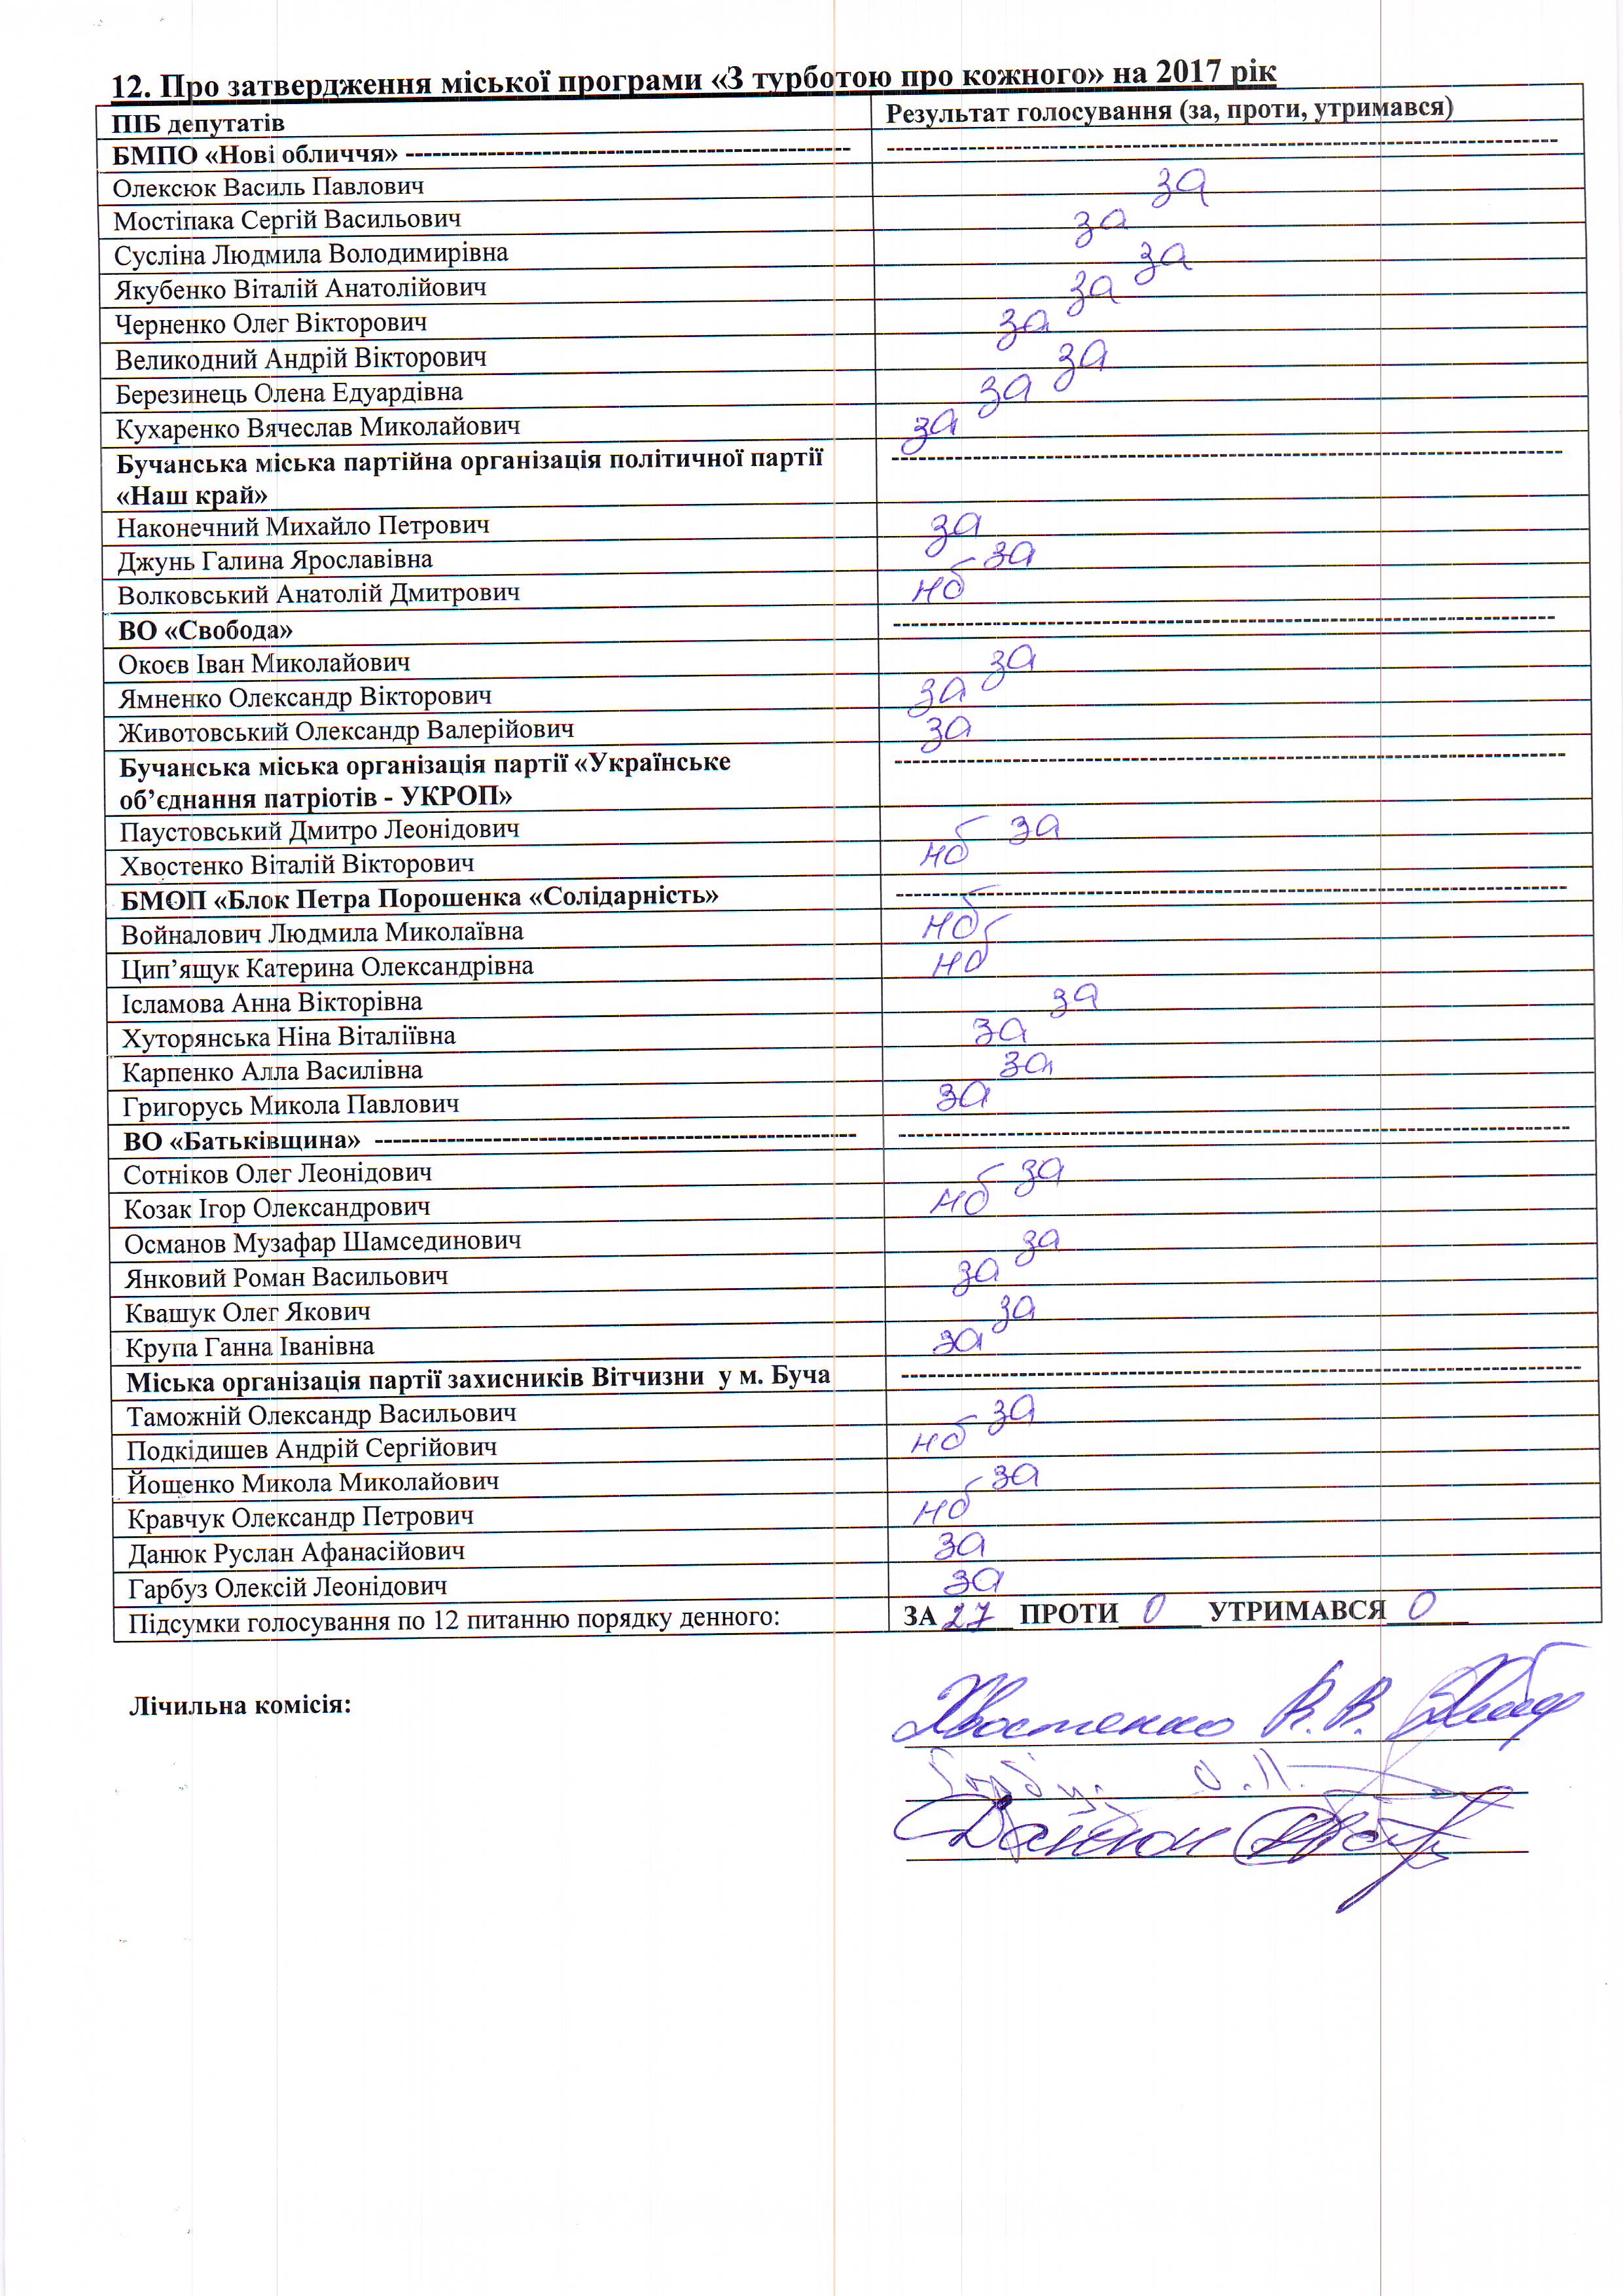 12. Про затвердження міської програми «З турботою про кожного» на 2017 рік
ПІБ депутатів Результат голосування (за, проти, утримався)
БМПО «Нові обличчя» ---------- ----------
Олексюк Василь Павлович за
Мостіпака Сергій Васильович за
Сусліна Людмила Володимирівна за
Якубенко Віталій Анатолійович за
Черненко Олег Вікторович за
Великодний Андрій Вікторович за
Березинець Олена Едуардівна за
Кухаренко Вячеслав Миколайович за
Бучанська міська партійна організація політичної партії ----------
«Наш край»
Наконечний Михайло Петрович за
Джунь Галина Ярославівна за
Волковський Анатолій Дмитрович нб
ВО «Свобода» ----------
Окоєв Іван Миколайович за
Ямненко Олександр Вікторович за
Животовський Олександр Валерійович за
Бучанська міська організація партії «Українське ----------
об’єднання патріотів - УКРОП»
Паустовський Дмитро Леонідович за
Хвостенко Віталій Вікторович нб
БМОП «Блок Петра Порошенка «Солідарність» ----------
Войналович Людмила Миколаївна нб
Цип’ящук Катерина Олександрівна нб
Ісламова Анна Вікторівна за
Хуторянська Ніна Віталіївна за
Карпенко Алла Василівна за
Григорусь Микола Павлович за
ВО «Батьківщина» ---------- ----------
Сотніков Олег Леонідович за
Козак Ігор Олександрович нб
Османов Музафар Шамсединович за
Янковий Роман Васильович за
Квашук Олег Якович за
Крупа Ганна Іванівна за
Міська організація партії захисників Вітчизни у м. Буча ----------
Таможній Олександр Васильович за
Подкідишев Андрій Сергійович нб
Йощенко Микола Миколайович за
Кравчук Олександр Петрович нб
Данюк Руслан Афанасійович за
Гарбуз Олексій Леонідович за
Підсумки голосування по 12 питанню порядку денного: ЗА 27 ПРОТИ 0 УТРИМАВСЯ 0
Лічильна комісія:
Хвостенко В.В.
Гарбуз О.Л.
Данюк